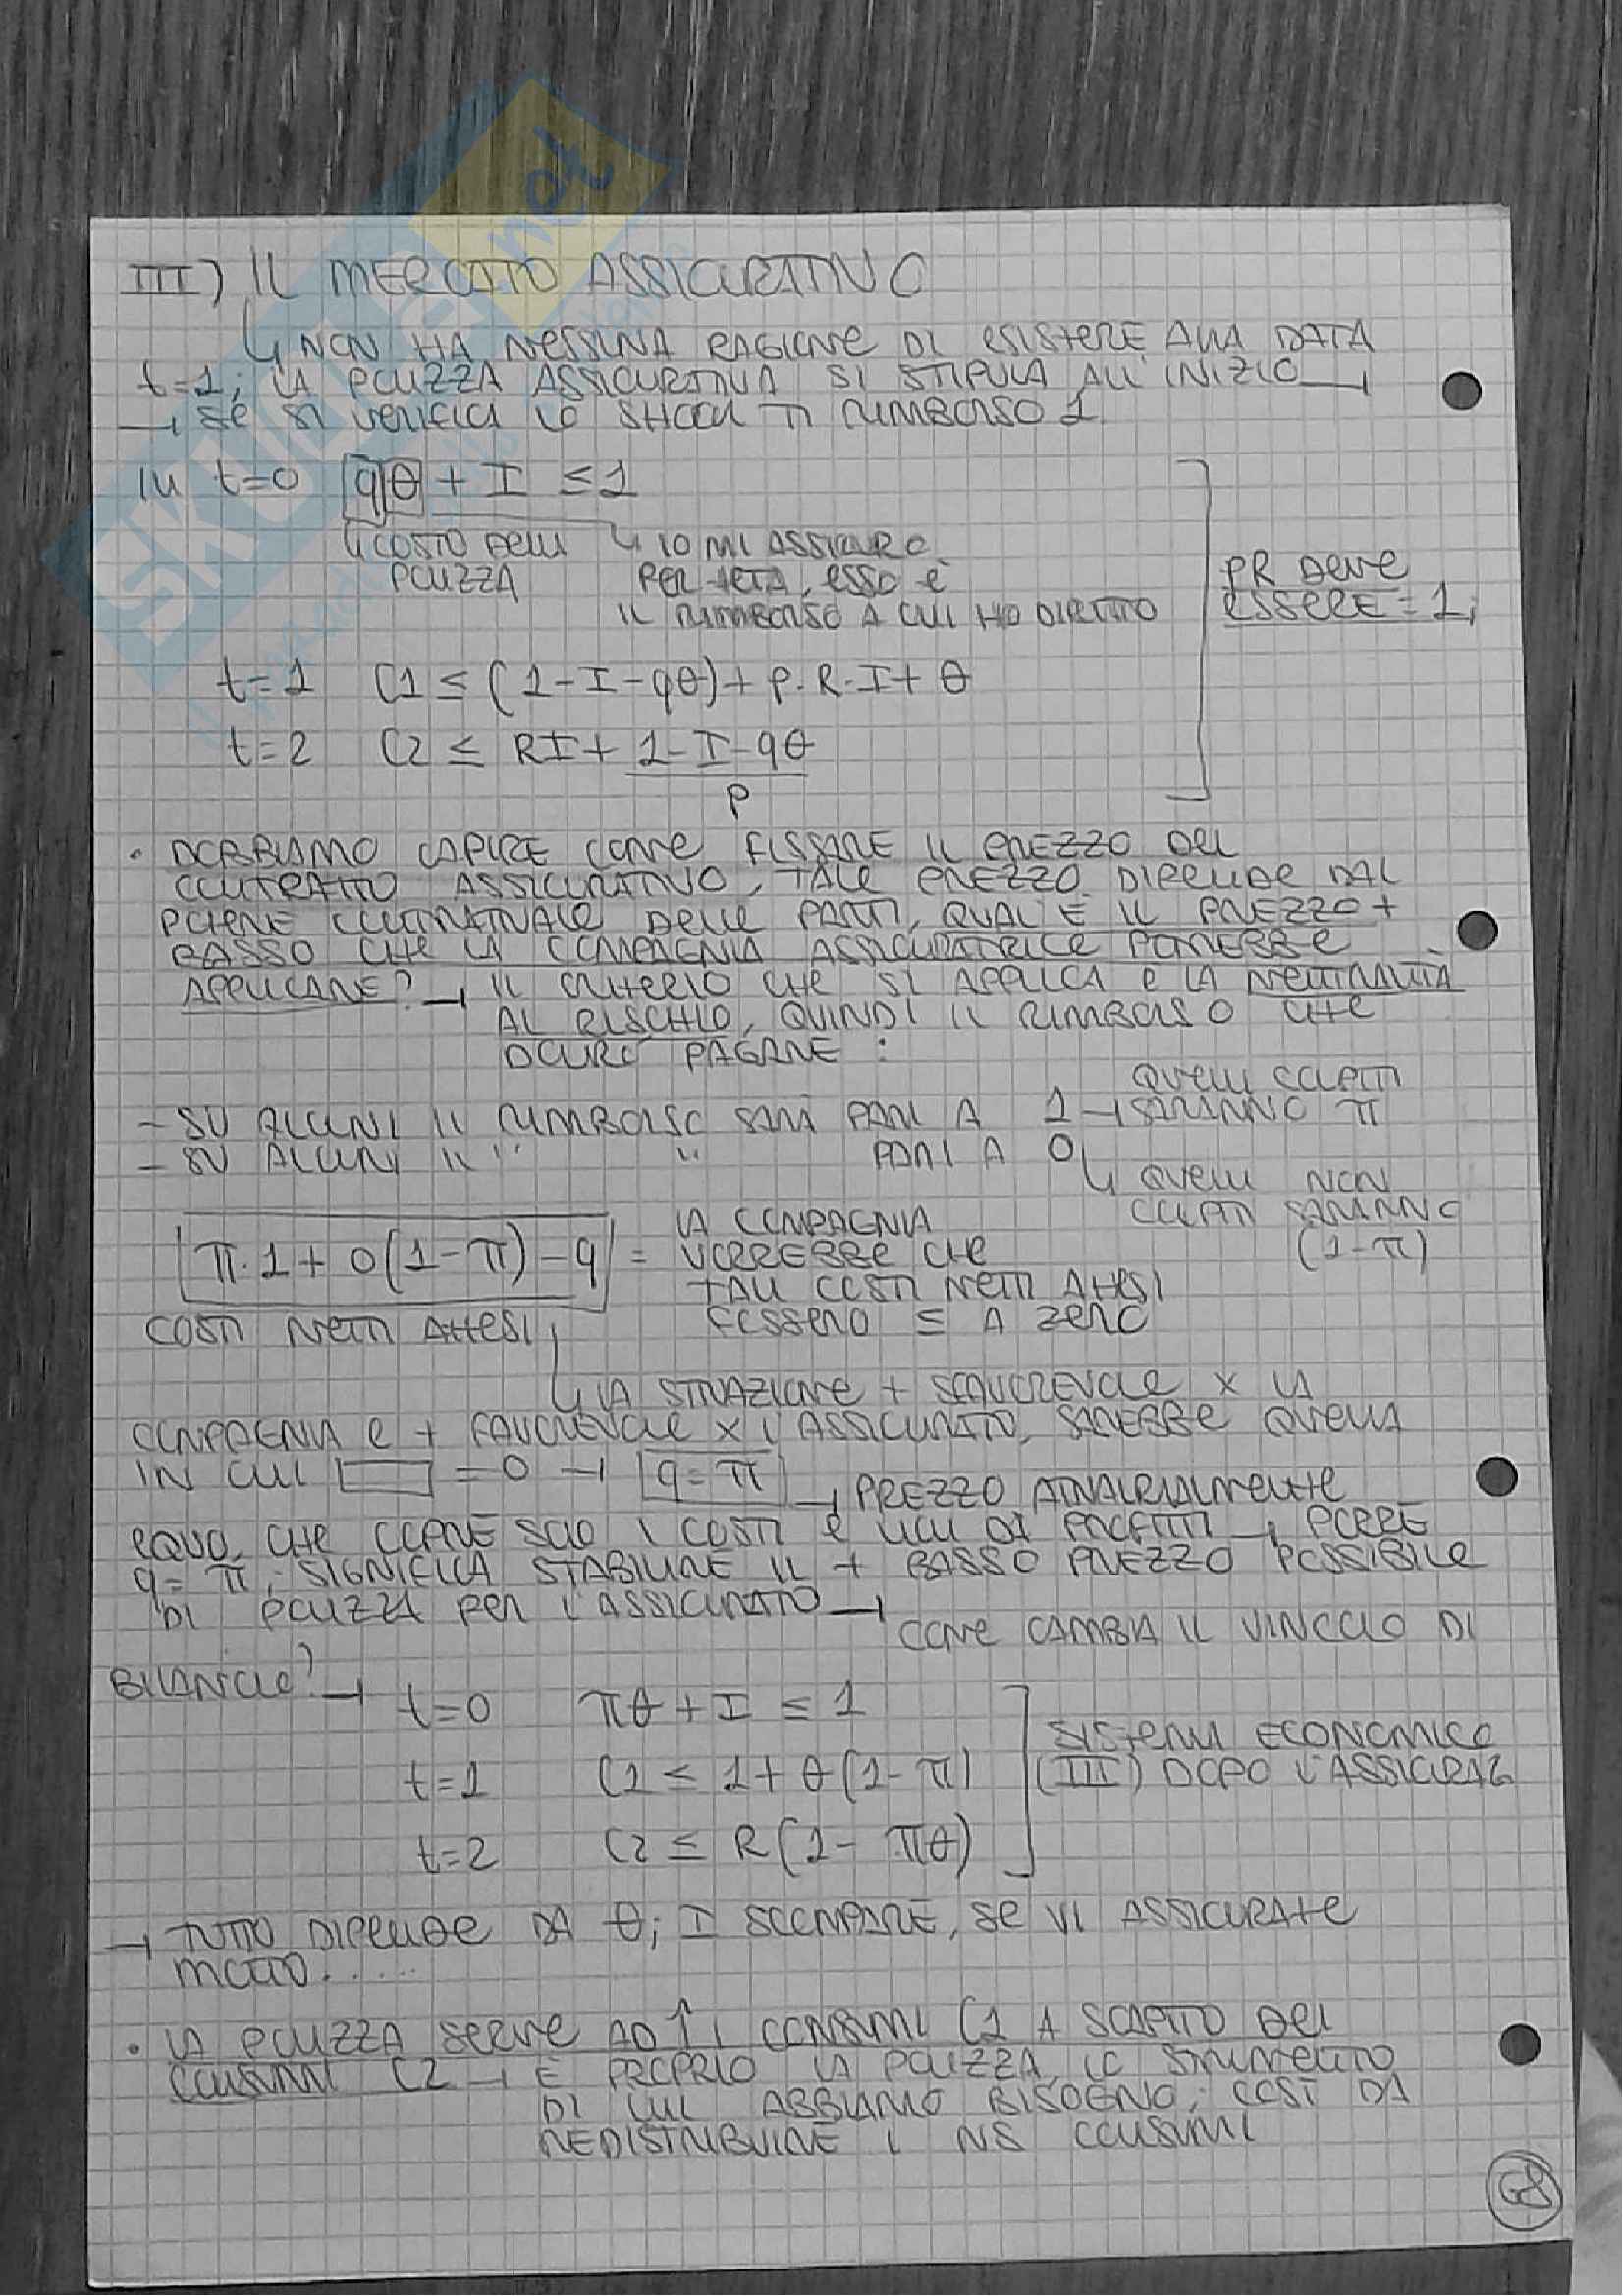 III) IL MERCATO ASSICURATIVO
↳ NON HA NESSUNA RAGIONE DI ESISTERE ALLA DATA
t=1; LA POLIZZA ASSICURATIVA SI STIPULA ALL'INIZIO →
→ SE SI VERIFICA LO SHOCK TI RIMBORSO 1.
IN t=0 qθ + I ≤ 1
↳ COSTO DELLA POLIZZA
↳ IO MI ASSICURO
PER TETA, ESSO È
IL RIMBORSO A CUI HO DIRITTO
PR DEVE
ESSERE = 1;
t=1 C1 ≤ (1-I-qθ)+P·R·I+θ
t=2 C2 ≤ RI + 1-I-qθ
P
• DOBBIAMO CAPIRE COME FISSARE IL PREZZO DEL
CONTRATTO ASSICURATIVO, TALE PREZZO DIPENDE DAL
POTERE CONTRATTUALE DELLE PARTI, QUAL'È IL PREZZO +
BASSO CHE LA COMPAGNIA ASSICURATRICE POTREBBE
APPLICARE? → IL CRITERIO CHE SI APPLICA È LA NEUTRALITÀ
AL RISCHIO, QUINDI IL RIMBORSO CHE
DOVRÒ PAGARE:
- SU ALCUNI IL RIMBORSO SARÀ PARI A 1 → QUELLI COLPITI
SARANNO π
- SU ALCUNI IL " " PARI A 0
↳ QUELLI NON
COLPITI SARANNO
(1-π)
π·1+0(1-π)-q = LA COMPAGNIA
VORREBBE CHE
TALI COSTI NETTI ATTESI
FOSSERO ≤ A ZERO
COSTI NETTI ATTESI
↳ LA SITUAZIONE + SFAVOREVOLE X LA
COMPAGNIA E + FAVOREVOLE X L'ASSICURATO, SAREBBE QUELLA
IN CUI = 0 → q=π → PREZZO ATTUARIALMENTE
EQUO, CHE COPRE SOLO I COSTI E NON DÀ PROFITTI → PORRE
q=π, SIGNIFICA STABILIRE IL + BASSO PREZZO POSSIBILE
DI POLIZZA PER L'ASSICURATO →
COME CAMBIA IL VINCOLO DI
BILANCIO? → t=0 πθ+I ≤ 1
t=1 C1 ≤ 1+θ(1-π)
t=2 C2 ≤ R(1-πθ)
SISTEMA ECONOMICO
(III) DOPO L'ASSICURAZ
→ TUTTO DIPENDE DA θ; I SCOMPARE, SE VI ASSICURATE
MOLTO......
• LA POLIZZA SERVE AD ↑ I CONSUMI C1 A SCAPITO DEI
CONSUMI C2 → È PROPRIO LA POLIZZA, LO STRUMENTO
DI CUI ABBIAMO BISOGNO, COSÌ DA
REDISTRIBUIRE I NS CONSUMI
68